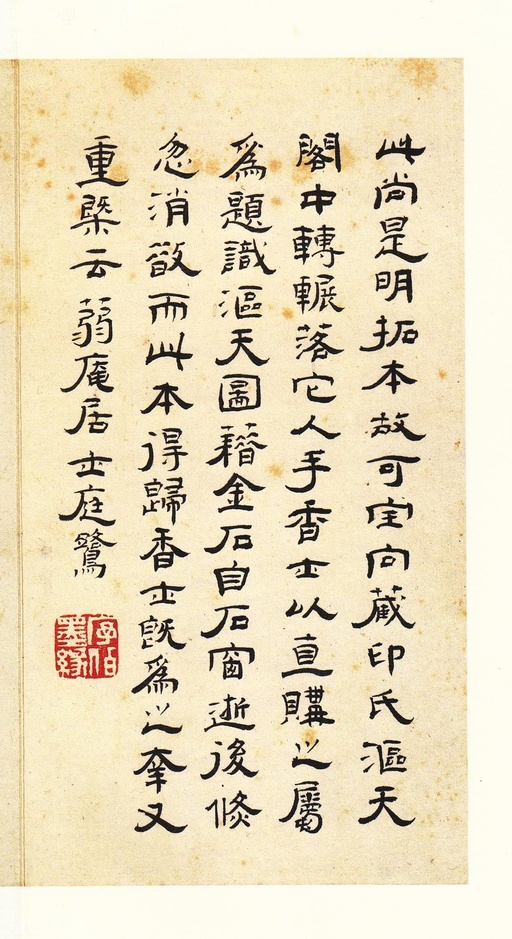 此尚是明拓本故可宝向藏印氏漚天
閣中轉輾落它人手香士以直購之屬
為題識漚天圖藉金石自石窗逝後倏
忽消散而此本得歸香士旣為之幸又
重槩云蒻庵居士庭鷺
序伯墨緣